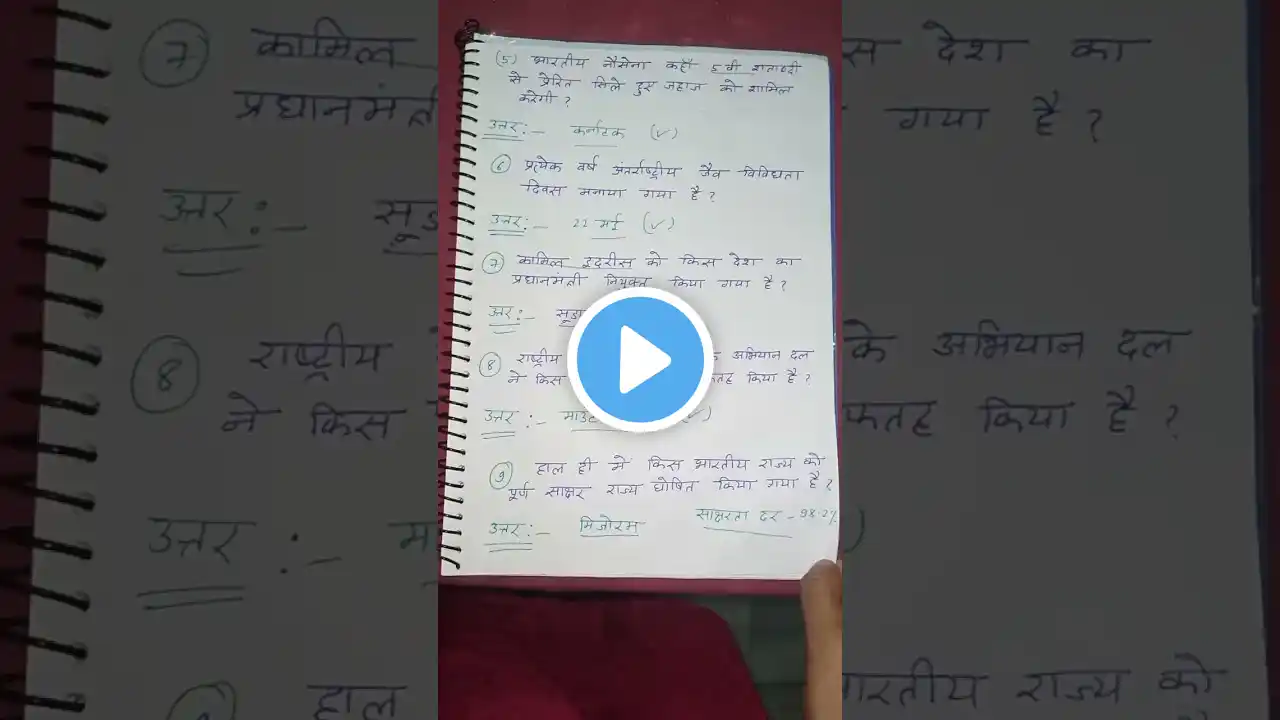 (5) भारतीय नौसेना कहाँ 5वी शताब्दी
से प्रेरित सिले हुए जहाज को शामिल
करेगी ?
उत्तर:- कर्नाटक (✓)
6 प्रत्येक वर्ष अंतर्राष्ट्रीय जैव विविधता
दिवस मनाया गया है ?
उत्तर:- 22 मई (✓)
7 कामिल इदरीस को किस देश का
प्रधानमंत्री नियुक्त किया गया है ?
उत्तर:-
8 राष्ट्रीय के अभियान दल
ने किस फतह किया है ?
उत्तर:-
9 हाल ही में किस भारतीय राज्य को
पूर्ण साक्षर राज्य घोषित किया गया है ?
उत्तर:- मिजोरम साक्षरता दर - 98.2%